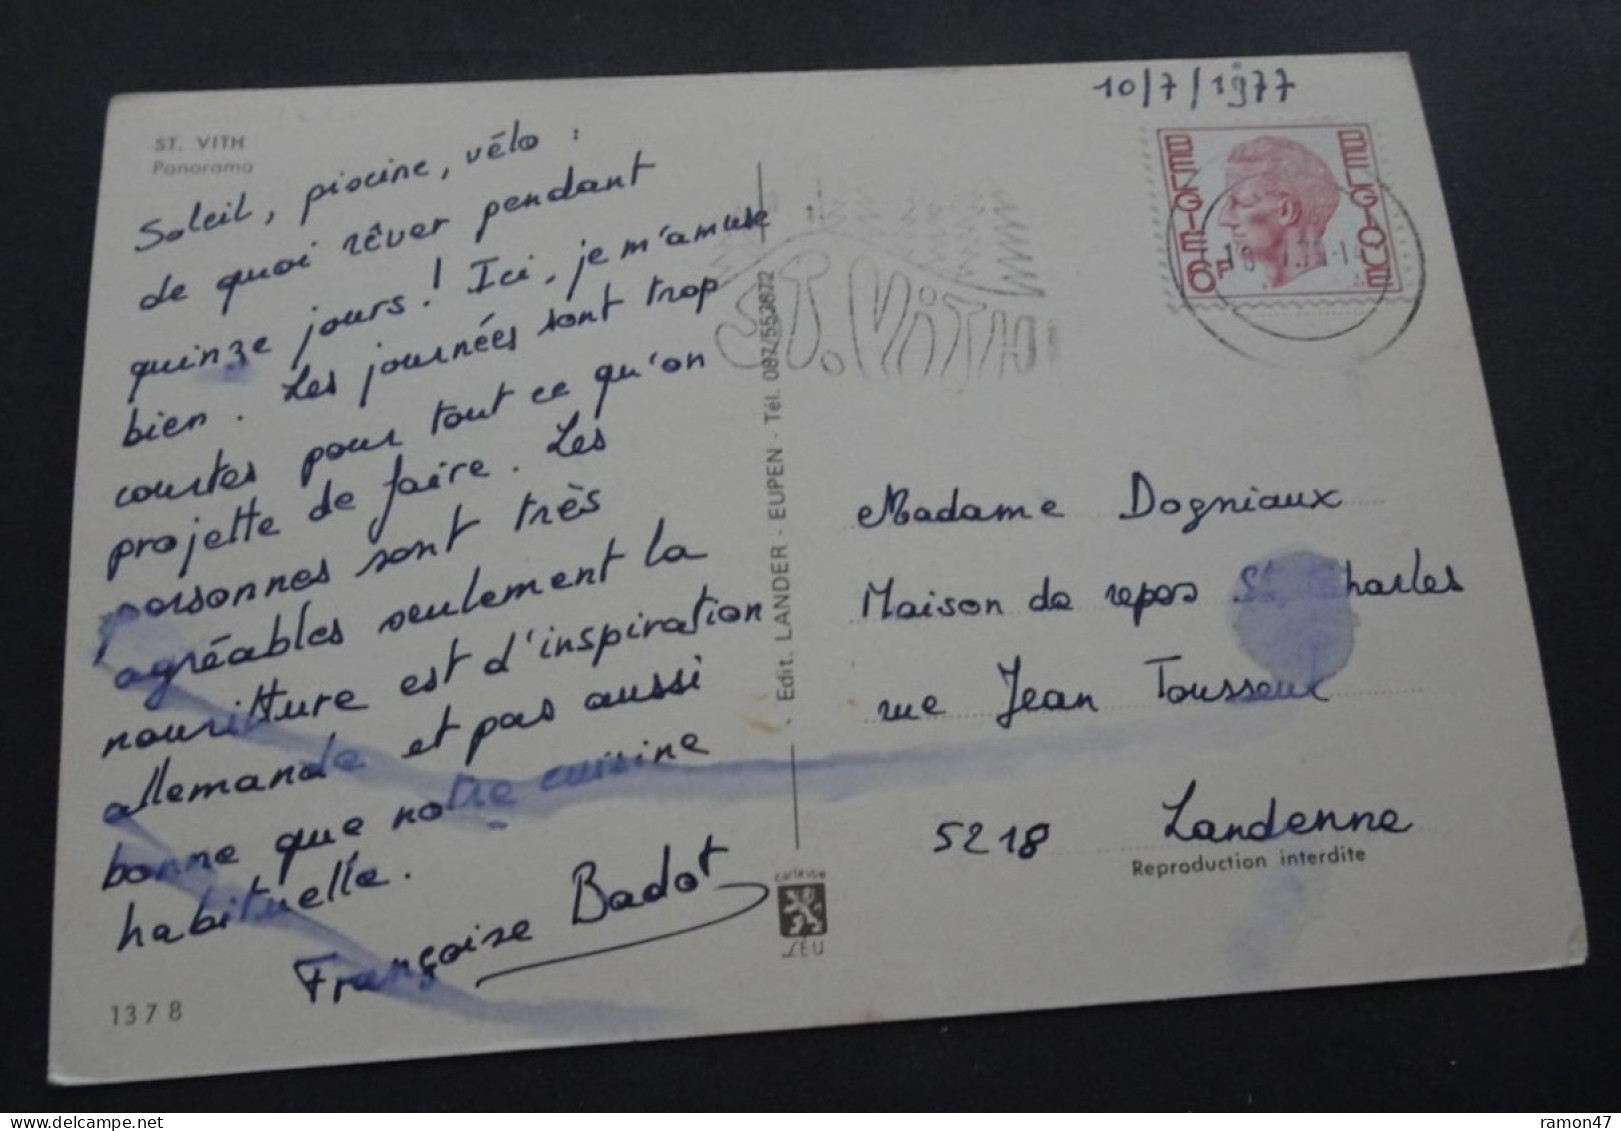 10/7/1977
ST. VITH
Panorama
Soleil, piscine, vélo :
de quoi rêver pendant
quinze jours ! Ici, je m'amuse
bien. Les journées sont trop
courtes pour tout ce qu'on
projette de faire. Les
personnes sont très
agréables seulement la
nourritture est d'inspiration
allemande et pas aussi
bonne que notre cuisine
habituelle.
Françoise Badot
1378
Edit. LANDER - EUPEN - Tél. 087/553872
ST. VITH
BELGIE
BELGIQUE
6F
Madame Dogniaux
Maison de repos St Charles
rue Jean Tousseul
5218 Landenne
Reproduction interdite
LEU
ramon47